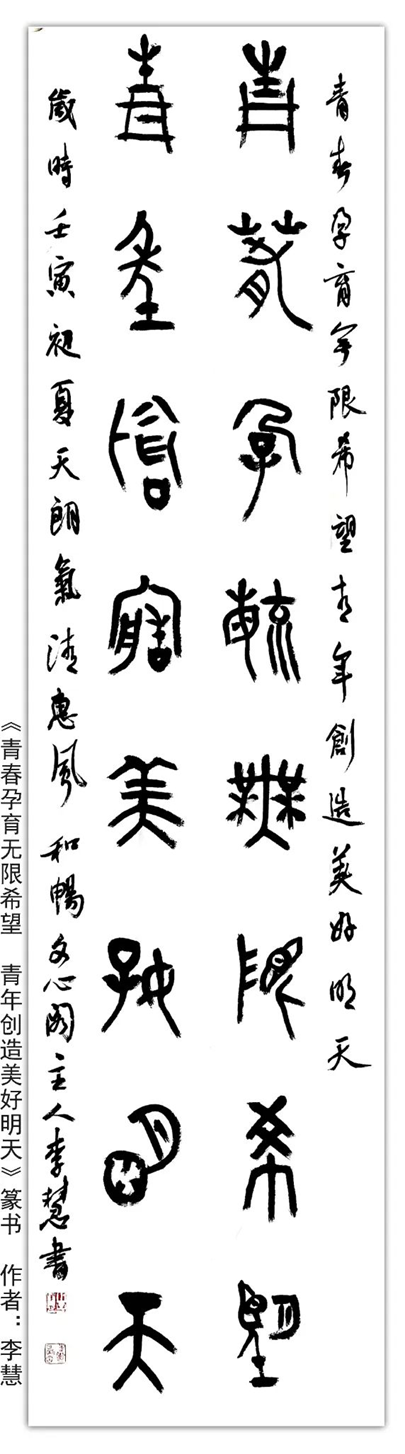 青春孕育無限希望青年創造美好明天
青春孕育無限希望
青年創造美好明天
歲時壬寅初夏天朗氣清惠風和暢文心閣主人李慧書
《青春孕育无限希望 青年创造美好明天》篆书 作者：李慧